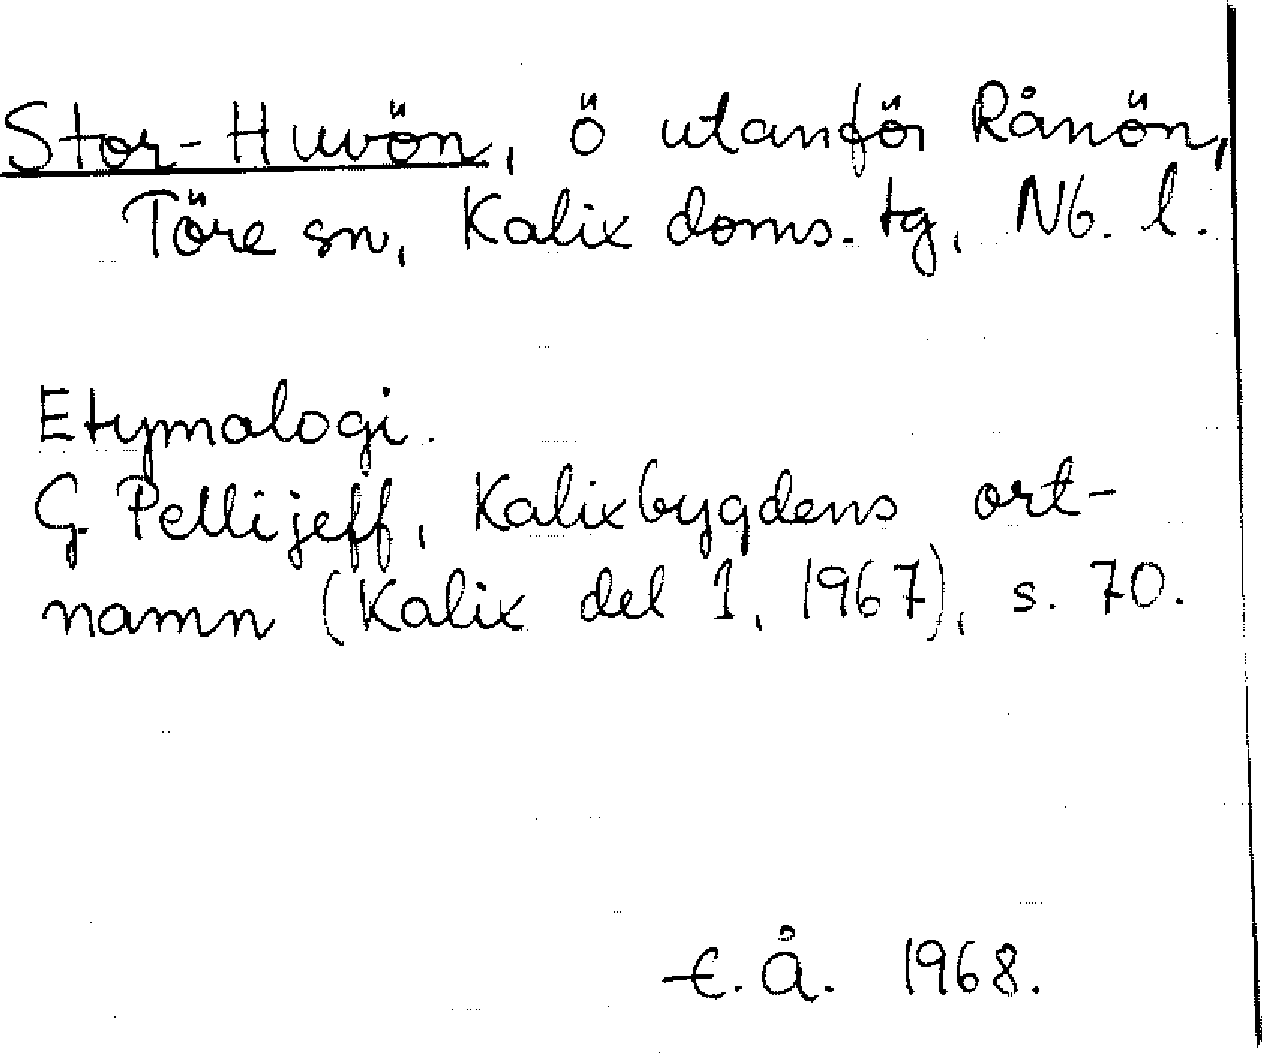 Stor-Huvön, ö utanför Rånön,
Töre sn, Kalix doms. tg, Nb. l.
Etymologi.
G Pellijeff, Kalixbygdens ort-
namn (Kalix del 1, 1967), s. 70.
E. Å. 1968.